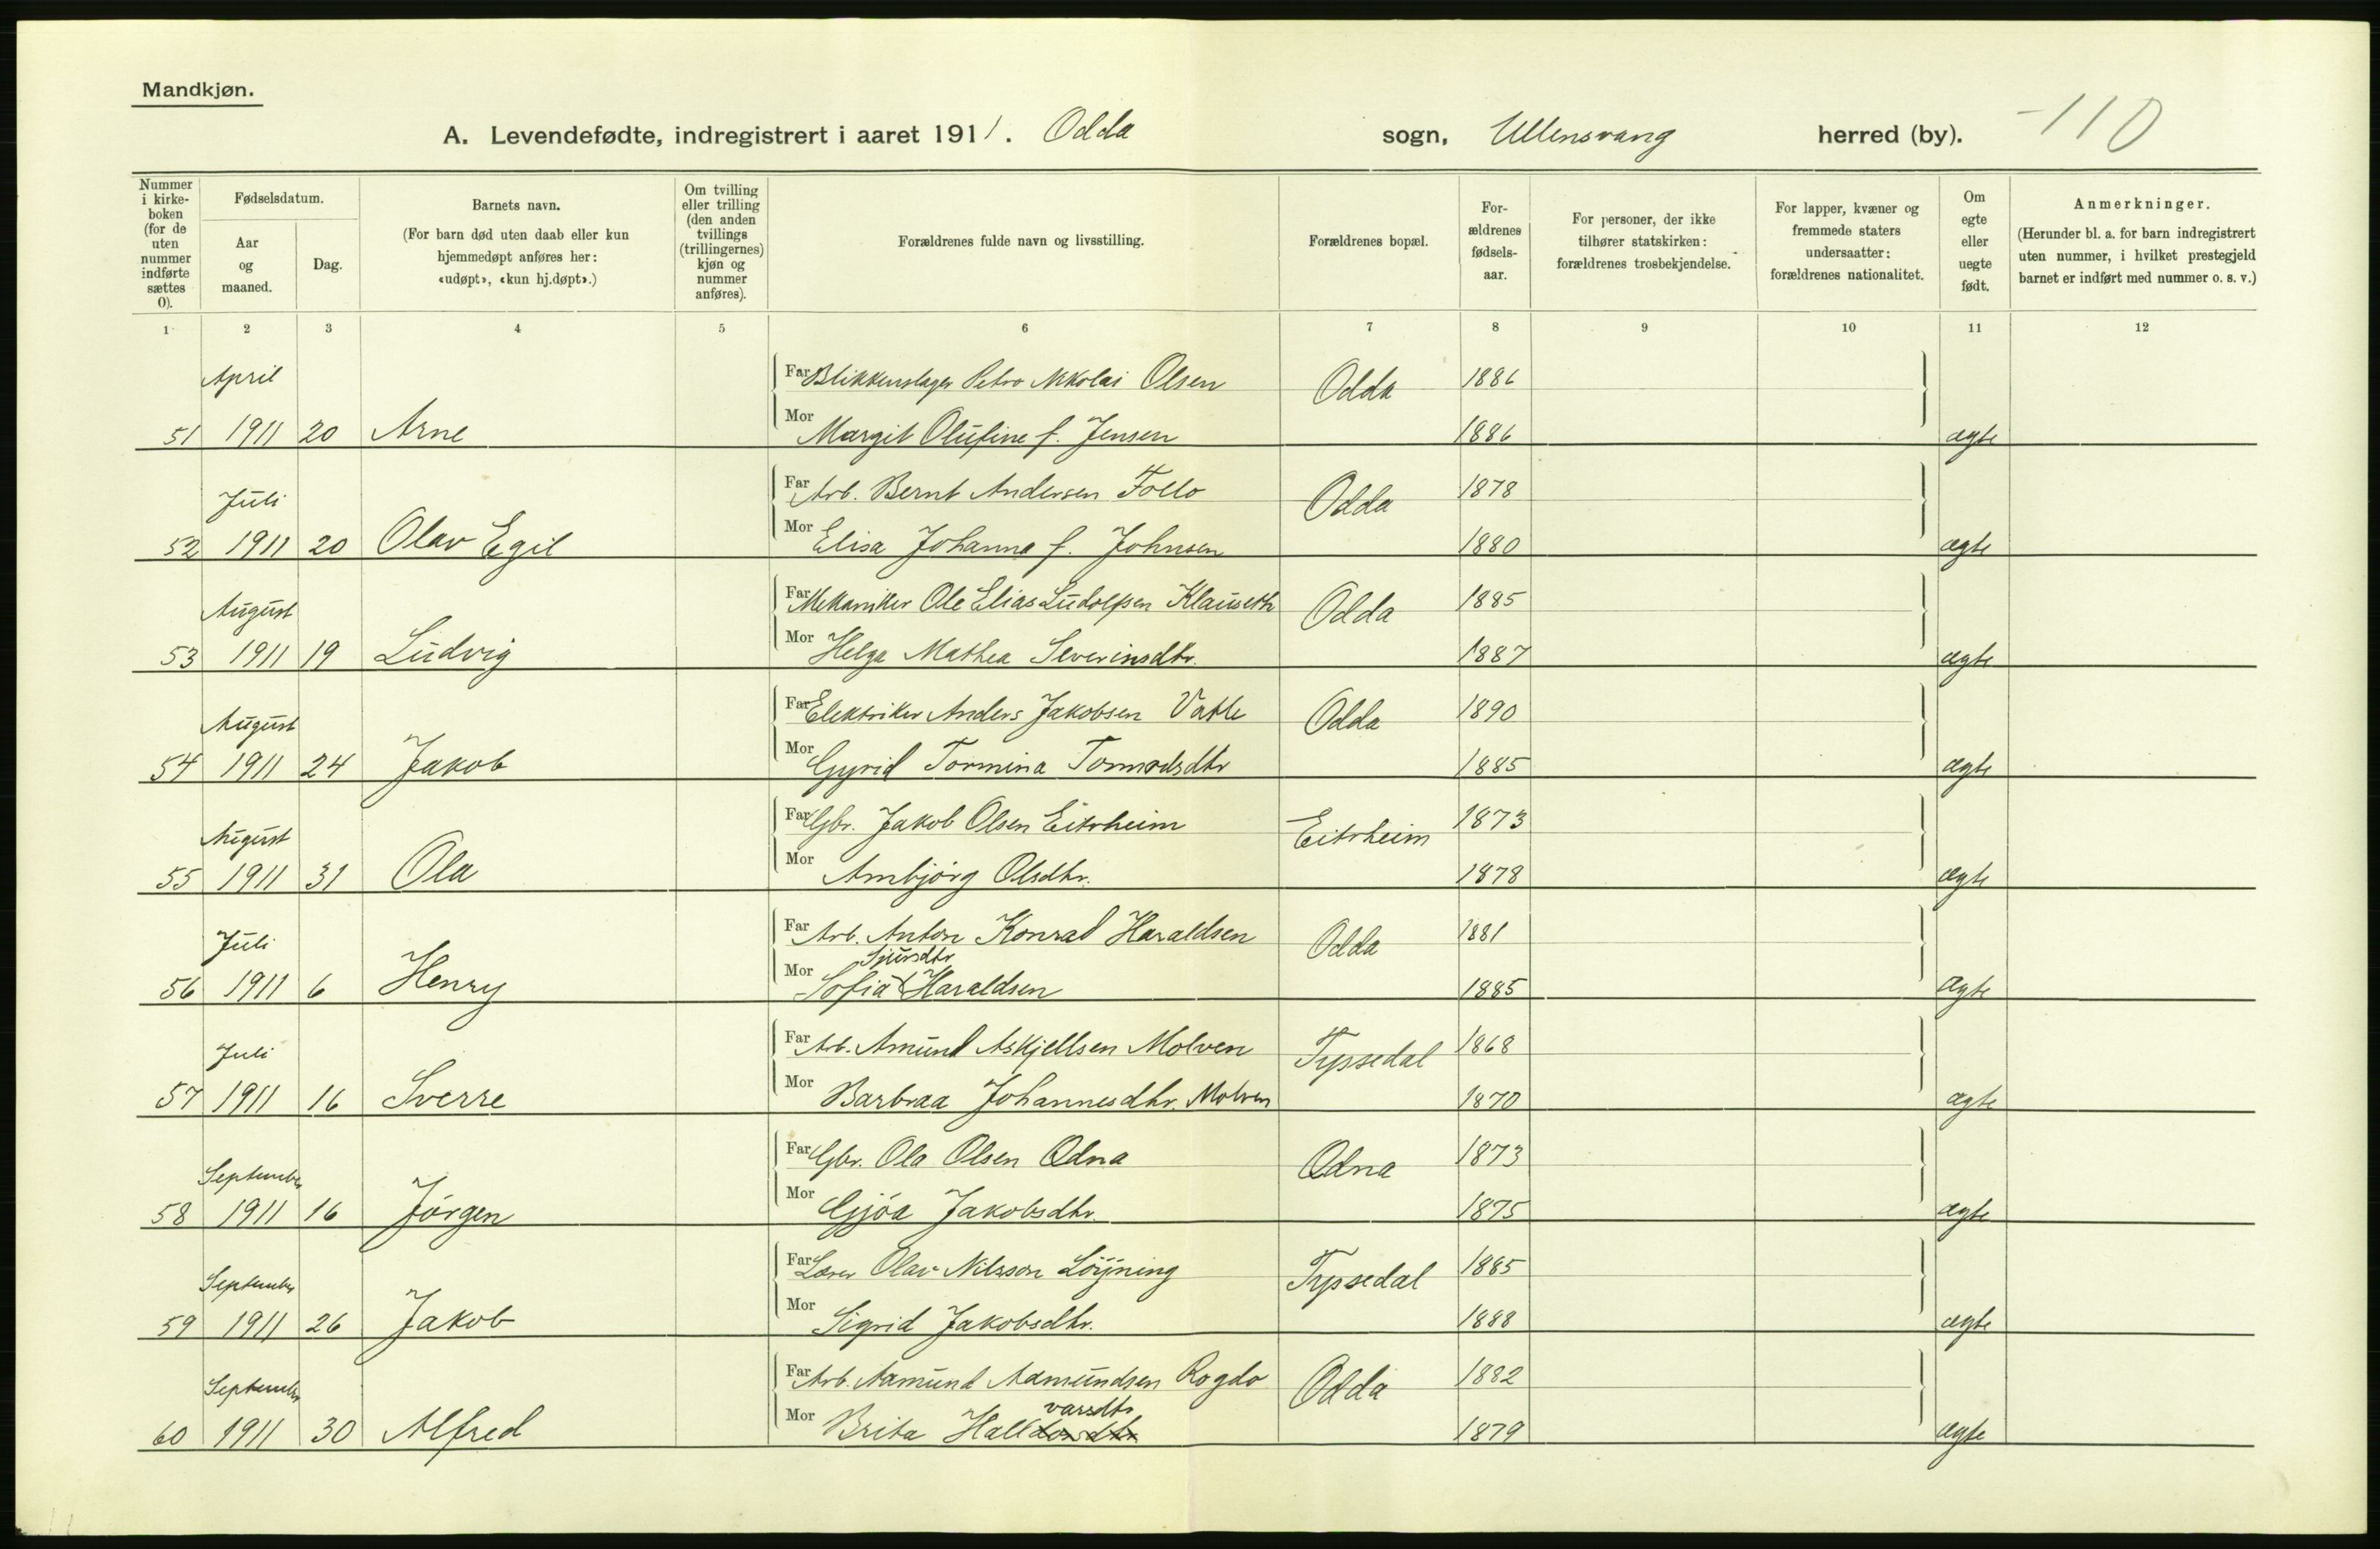 Mandkjøn.
A. Levendefødte, indregistrert i aaret 1911. Odda sogn, Ullensvang herred (by). -110
Nummer i kirke-boken (for de uten nummer indførte sættes 0).
Fødselsdatum.
Aar og maaned.
Dag.
Barnets navn.
(For barn død uten daab eller kun hjemmedøpt anføres her: «udøpt», «kun hj.døpt».)
Om tvilling eller trilling (den anden tvillings (trillingernes) kjøn og nummer anføres).
Forældrenes fulde navn og livsstilling.
Forældrenes bopæl.
For-ældrenes fødsels-aar.
For personer, der ikke tilhører statskirken: forældrenes trosbekjendelse.
For lapper, kvæner og fremmede staters undersaatter: forældrenes nationalitet.
Om egte eller uegte født.
Anmerkninger.
(Herunder bl. a. for barn indregistrert uten nummer, i hvilket prestegjeld barnet er indført med nummer o. s. v.)
1 2 3 4 5 6 7 8 9 10 11 12
April Far Blikkenslager Petro Nikolai Olsen Odda 1886
51 1911 20 Arne Mor Margit Olufine f. Jensen 1886 ægte
Juli Far Arb. Bernt Andersen Follo Odda 1878
52 1911 20 Olav Egil Mor Elisa Johanna f. Johnsen 1880 ægte
August Far Mekaniker Ole Elias Ludolfsen Klauseth Odda 1885
53 1911 19 Ludvig Mor Helga Mathea Severinsdtr. 1887 ægte
August Far Elektriker Anders Jakobsen Vatle Odda 1890
54 1911 24 Jakob Mor Gyrid Tormina Tormodsdtr 1885 ægte
August Far Gbr. Jakob Olsen Eitrheim Eitrheim 1873
55 1911 31 Ola Mor Ambjørg Olsdtr. 1878 ægte
Juli Far Arb. Anton Konrad Haraldsen Odda 1881
Sjursdtr
56 1911 6 Henry Mor Sofia Haraldsen 1885 ægte
Juli Far Arb. Amund Askjellsen Molven Tyssedal 1868
57 1911 16 Sverre Mor Barbraa Johannesdtr. Molven 1870 ægte
September Far Gbr. Ola Olsen Qdna Qdna 1873
58 1911 16 Jørgen Mor Gjøa Jakobsdtr. 1875 ægte
September Far Lærer Olav Nilsson Löyning Tyssedal 1885
59 1911 26 Jakob Mor Sigrid Jakobsdtr. 1888 ægte
September Far Arb. Aamund Aamundsen Rogdo Odda 1882
varsdtr
60 1911 30 Alfred Mor Brita Halldorsdtr 1879 ægte